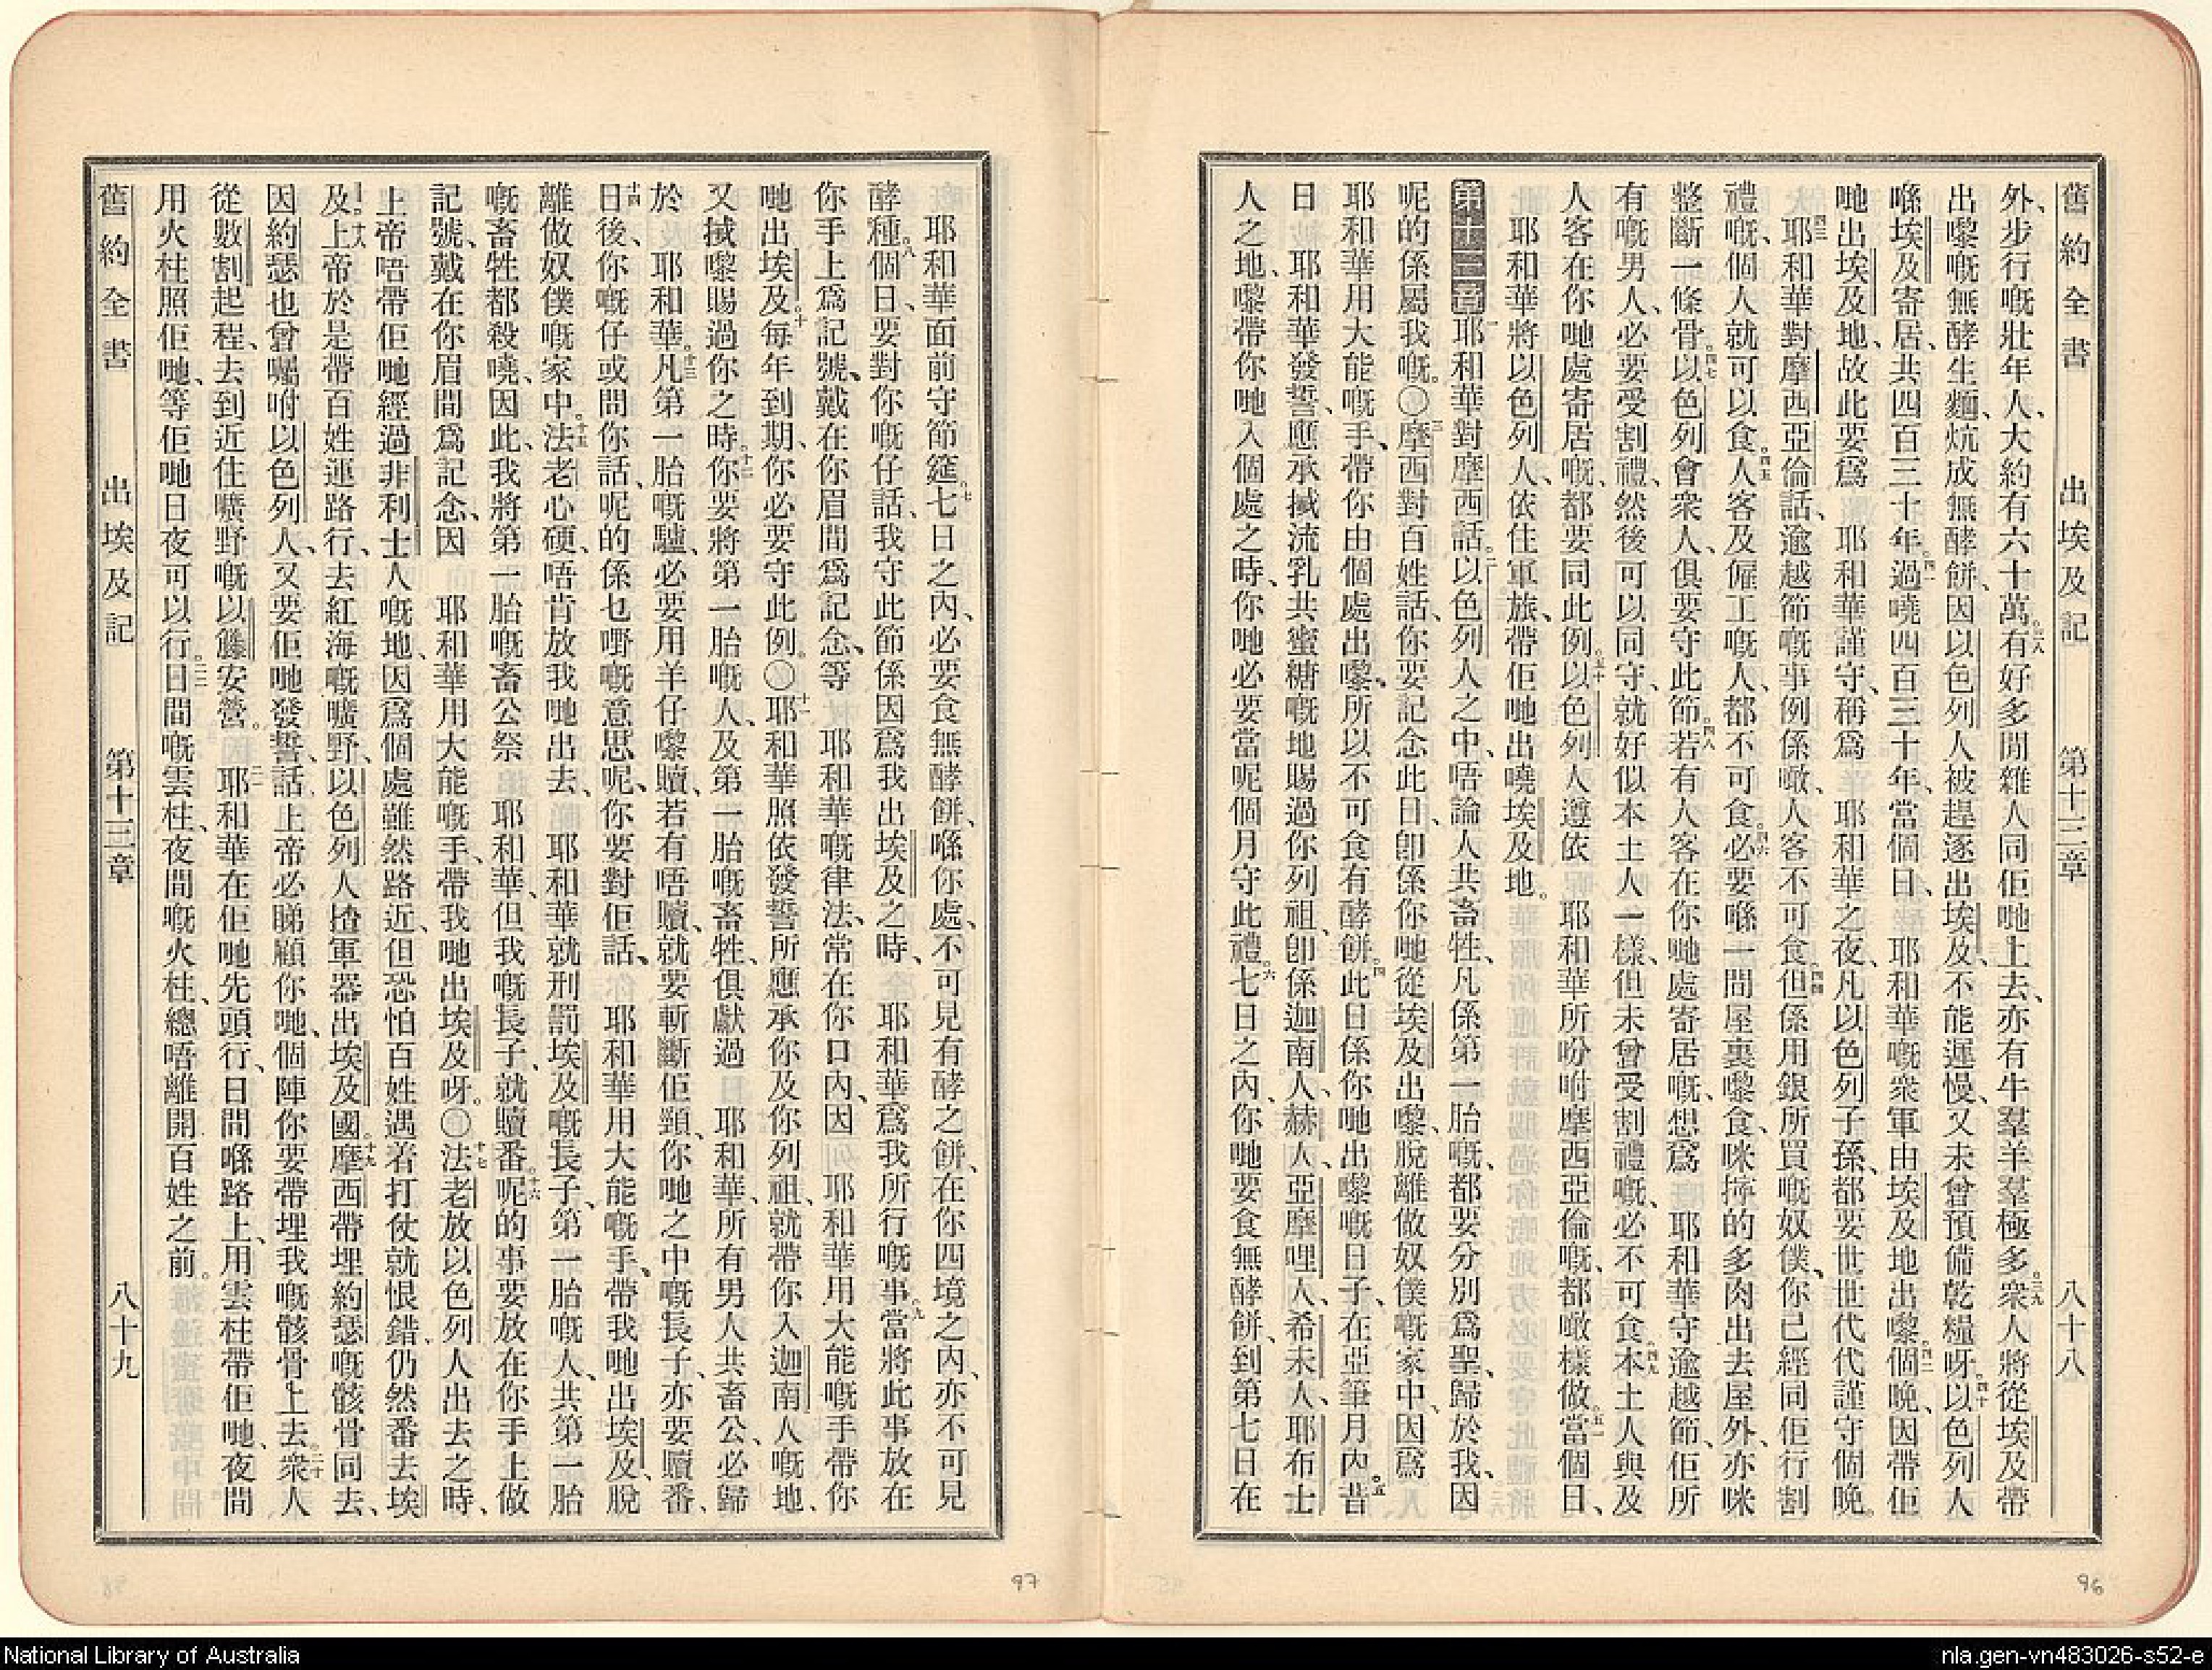 舊約全書　出埃及記　第十三章　八十八
外、步行嘅壯年人、大約有六十萬。三八有好多閒雜人同佢哋上去、亦有牛羣羊羣極多。三九衆人將從埃及帶
出嚟嘅無酵生麵、炕成無酵餅、因以色列人被趕逐出埃及、不能遲慢、又未曾預備乾糧呀。四十以色列人
喺埃及寄居、共四百三十年。四一過曉四百三十年、當個日、耶和華嘅衆軍由埃及地出嚟。四二個晚、因帶佢
哋出埃及地、故此要爲耶和華謹守、稱爲耶和華之夜、凡以色列子孫、都要世世代代謹守個晚。
四三耶和華對摩西亞倫話、逾越節嘅事例係噉、人客不可食、四四但係用銀所買嘅奴僕、你已經同佢行割
禮嘅、個人就可以食。四五人客及僱工嘅人、都不可食。四六必要喺一間屋裏嚟食、咪擰的多肉出去屋外、亦咪
整斷一條骨。四七以色列會衆人、俱要守此節。四八若有人客在你哋處寄居嘅、想爲耶和華守逾越節、佢所
有嘅男人、必要受割禮、然後可以同守、就好似本土人一樣、但未曾受割禮嘅、必不可食。四九本土人與及
人客在你哋處寄居嘅、都要同此例。五十以色列人遵依耶和華所吩咐摩西亞倫嘅、都噉樣做。五一當個日、
耶和華將以色列人、依住軍旅、帶佢哋出曉埃及地。
第十三章一耶和華對摩西話。二以色列人之中、唔論人共畜牲、凡係第一胎嘅、都要分別爲聖、歸於我、因
呢的係屬我嘅。〇三摩西對百姓話、你要記念此日、卽係你哋從埃及出嚟、脫離做奴僕嘅家中、因爲
耶和華用大能嘅手、帶你由個處出嚟、所以不可食有酵餅。四此日係你哋出嚟嘅日子、在亞筆月內。五昔
日、耶和華發誓、應承搣流乳共蜜糖嘅地賜過你列祖、卽係迦南人、赫人、亞摩哩人、希未人、耶布士
人之地、嚟帶你哋入個處之時、你哋必要當呢個月守此禮。六七日之內、你哋要食無酵餅、到第七日在
耶和華面前守節筵。七七日之內、必要食無酵餅、喺你處、不可見有酵之餅、在你四境之內、亦不可見
酵種。八個日、要對你嘅仔話、我守此節、係因爲我出埃及之時、耶和華爲我所行嘅事。九當將此事放在
你手上爲記號、戴在你眉間爲記念、等耶和華嘅律法、常在你口內、因耶和華用大能嘅手帶你
哋出埃及。十每年到期、你必要守此例。〇十一耶和華照依發誓所應承你及你列祖、就帶你入迦南人嘅地、
又搣嚟賜過你之時。十二你要將第一胎嘅人、及第一胎嘅畜牲、俱獻過耶和華、所有男人共畜公、必歸
於耶和華。十三凡第一胎嘅驢、必要用羊仔嚟贖、若有唔贖、就要斬斷佢頸、你哋之中嘅長子、亦要贖番、
十四日後、你嘅仔或問你話、呢的係乜嘢嘅意思呢、你要對佢話、耶和華用大能嘅手、帶我哋出埃及、脫
離做奴僕嘅家中。十五法老心硬、唔肯放我哋出去、耶和華就刑罰埃及嘅長子、第一胎嘅人、共第一胎
嘅畜牲都殺曉、因此、我將第一胎嘅畜公祭耶和華、但我嘅長子、就贖番。十六呢的事要放在你手上做
記號、戴在你眉間爲記念、因耶和華用大能嘅手、帶我哋出埃及呀。〇十七法老放以色列人出去之時、
上帝唔帶佢哋經過非利士人嘅地、因爲個處雖然路近、但恐怕百姓遇着打仗就恨錯、仍然番去埃
及、十八上帝於是帶百姓運路行、去紅海嘅曠野、以色列人揸軍器出埃及國。十九摩西帶埋約瑟嘅骸骨同去、
因約瑟也曾囑咐以色列人、又要佢哋發誓、話、上帝必睇顧你哋、個陣你要帶埋我嘅骸骨上去。二十衆人
從數割起程、去到近住曠野嘅以艜安營。二一耶和華在佢哋先頭行、日間喺路上、用雲柱帶佢哋、夜間
用火柱照佢哋、等佢哋日夜可以行。二二日間嘅雲柱、夜間嘅火柱、總唔離開百姓之前。
舊約全書　出埃及記　第十三章　八十九
97
96
National Library of Australia
nla.gen-vn483026-s52-e